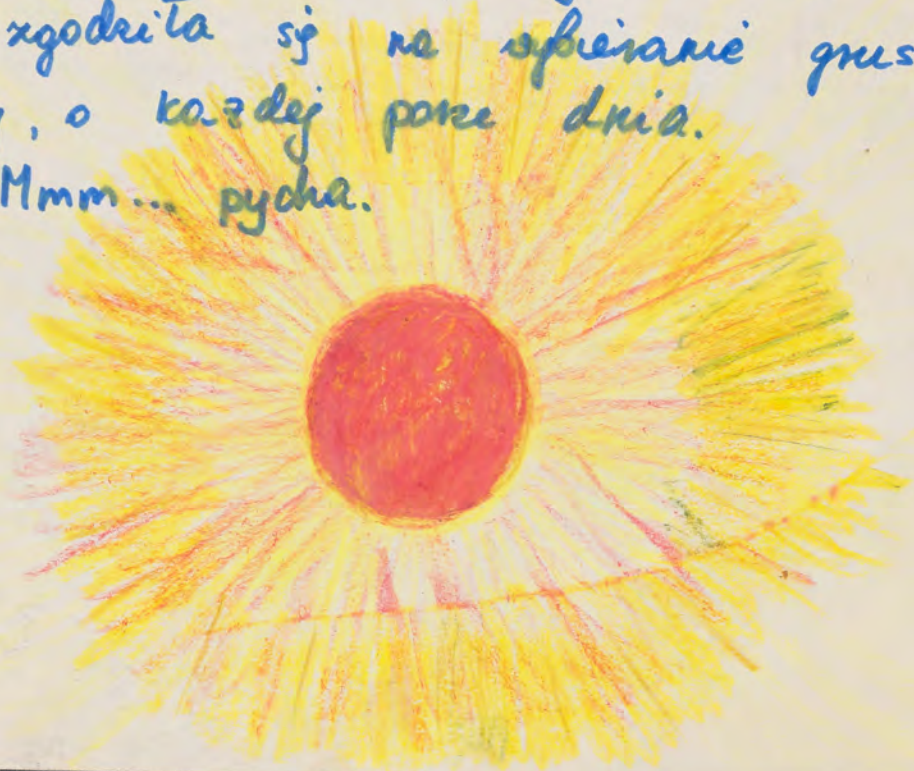 zgodziła się na wybieranie grus
, o każdej porze dnia.
Mmm... pycha.